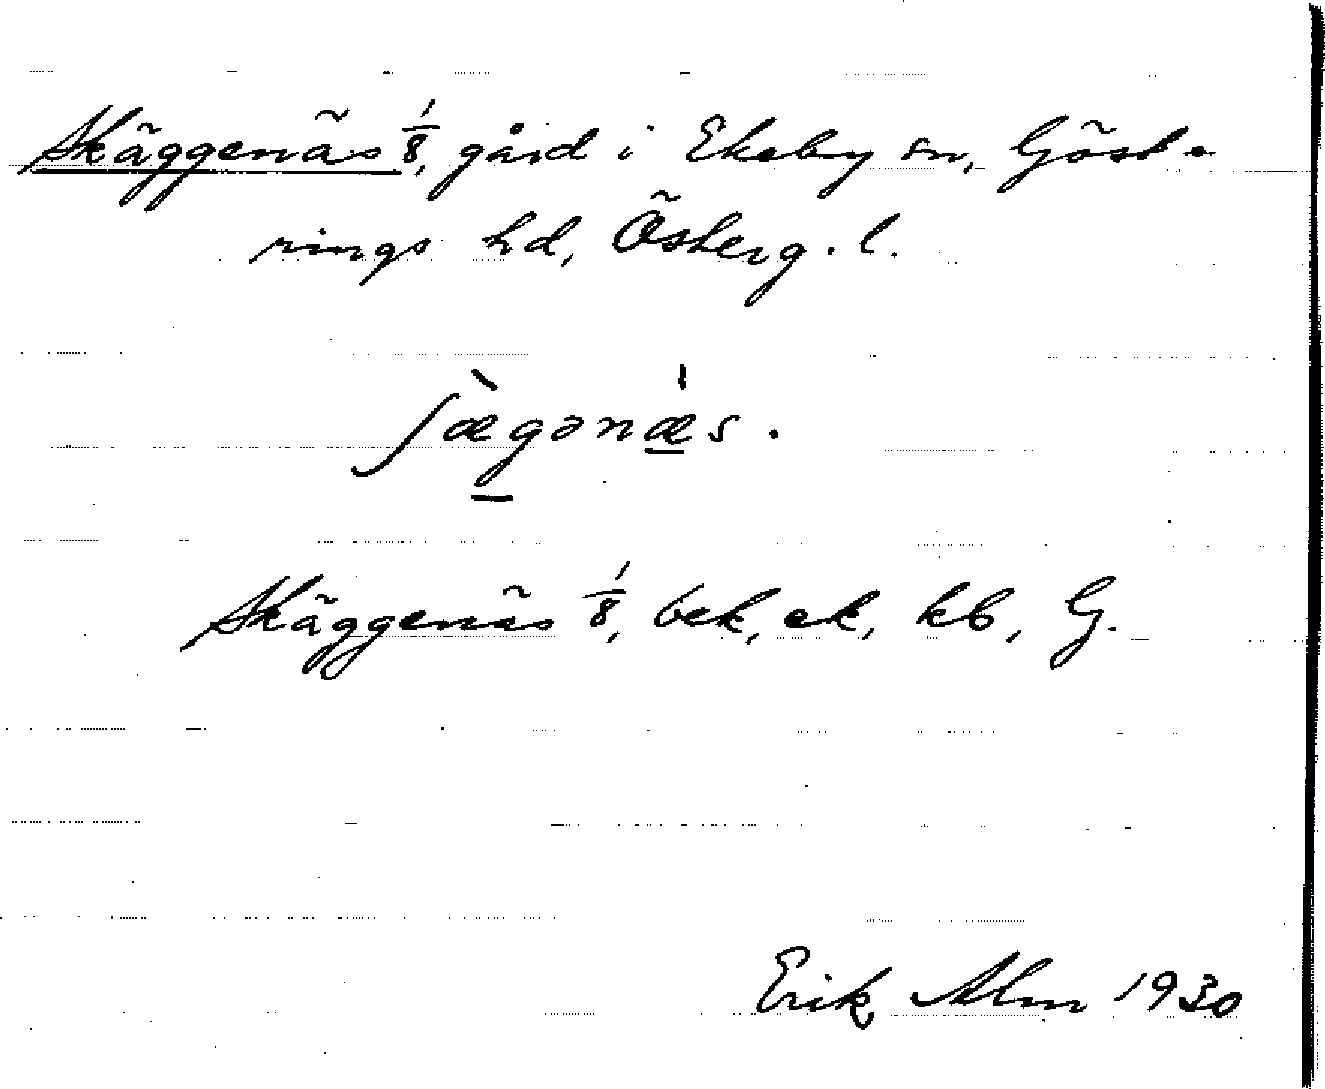 Skäggenäs 1/8, gård i Ekeby sn, Göst-
rings hd, Österg. l.
ʃæ̀gənæ̍s.
Skäggenäs 1/8, bek, ek, kb, G.
Erik Alm 1930